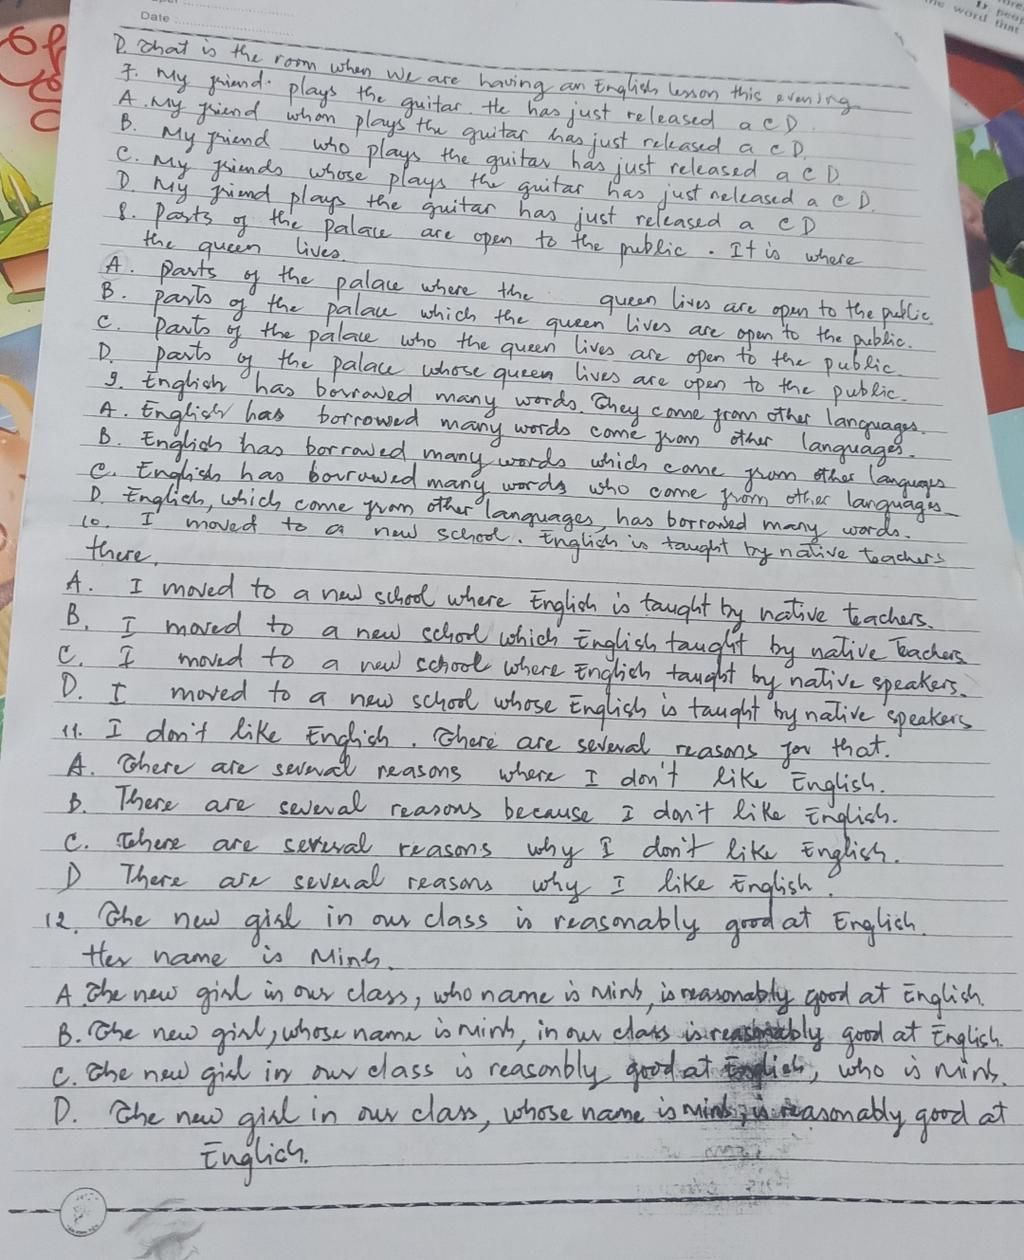 Date
D. That is the room when we are having an English lesson this evening
7. My friend plays the guitar. He has just released a CD.
A. My friend whom plays the guitar has just released a CD.
B. My friend who plays the guitar has just released a CD
C. My friends whose plays the guitar has just released a CD.
D. My friend plays the guitar has just released a CD
8. Parts of the palace are open to the public. It is where
the queen lives.
A. parts of the palace where the queen lives are open to the public.
B. parts of the palace which the queen lives are open to the public.
C. parts of the palace who the queen lives are open to the public.
D. parts of the palace whose queen lives are open to the public.
9. English has borrowed many words. They come from other languages.
A. English has borrowed many words come from other languages.
B. English has borrowed many words which come from other languages
C. English has borrowed many words who come from other languages.
D. English, which come from other languages, has borrowed many words.
10. I moved to a new school. English is taught by native teachers
there.
A. I moved to a new school where English is taught by native teachers.
B. I moved to a new school which English taught by native teachers
C. I moved to a new school where English taught by native speakers.
D. I moved to a new school whose English is taught by native speakers
11. I don't like English. There are several reasons for that.
A. There are several reasons where I don't like English.
B. There are several reasons because I don't like English.
C. There are several reasons why I don't like English.
D There are several reasons why I like English.
12. The new girl in our class is reasonably good at English.
Her name is Minh.
A. The new girl in our class, who name is Minh, is reasonably good at English.
B. The new girl, whose name is minh, in our class is reasonably good at English.
C. The new girl in our class is reasonbly good at English, who is Minh.
D. The new girl in our class, whose name is minh, is reasonably good at
English.
word that